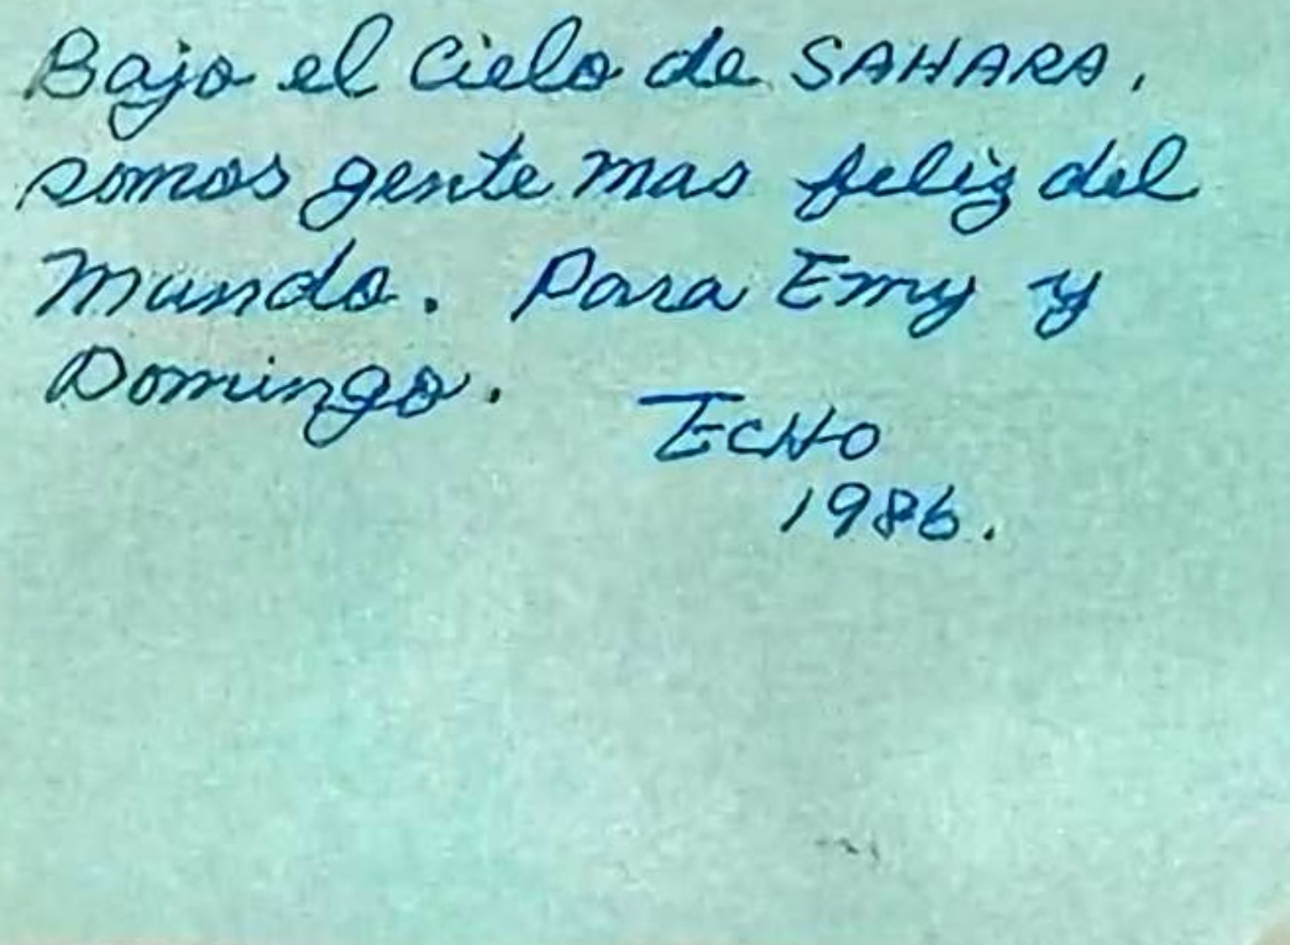 Bajo el Cielo de SAHARA,
somos gente mas feliz del
Mundo. Para Emy y
Domingo.
ECHO
1986.